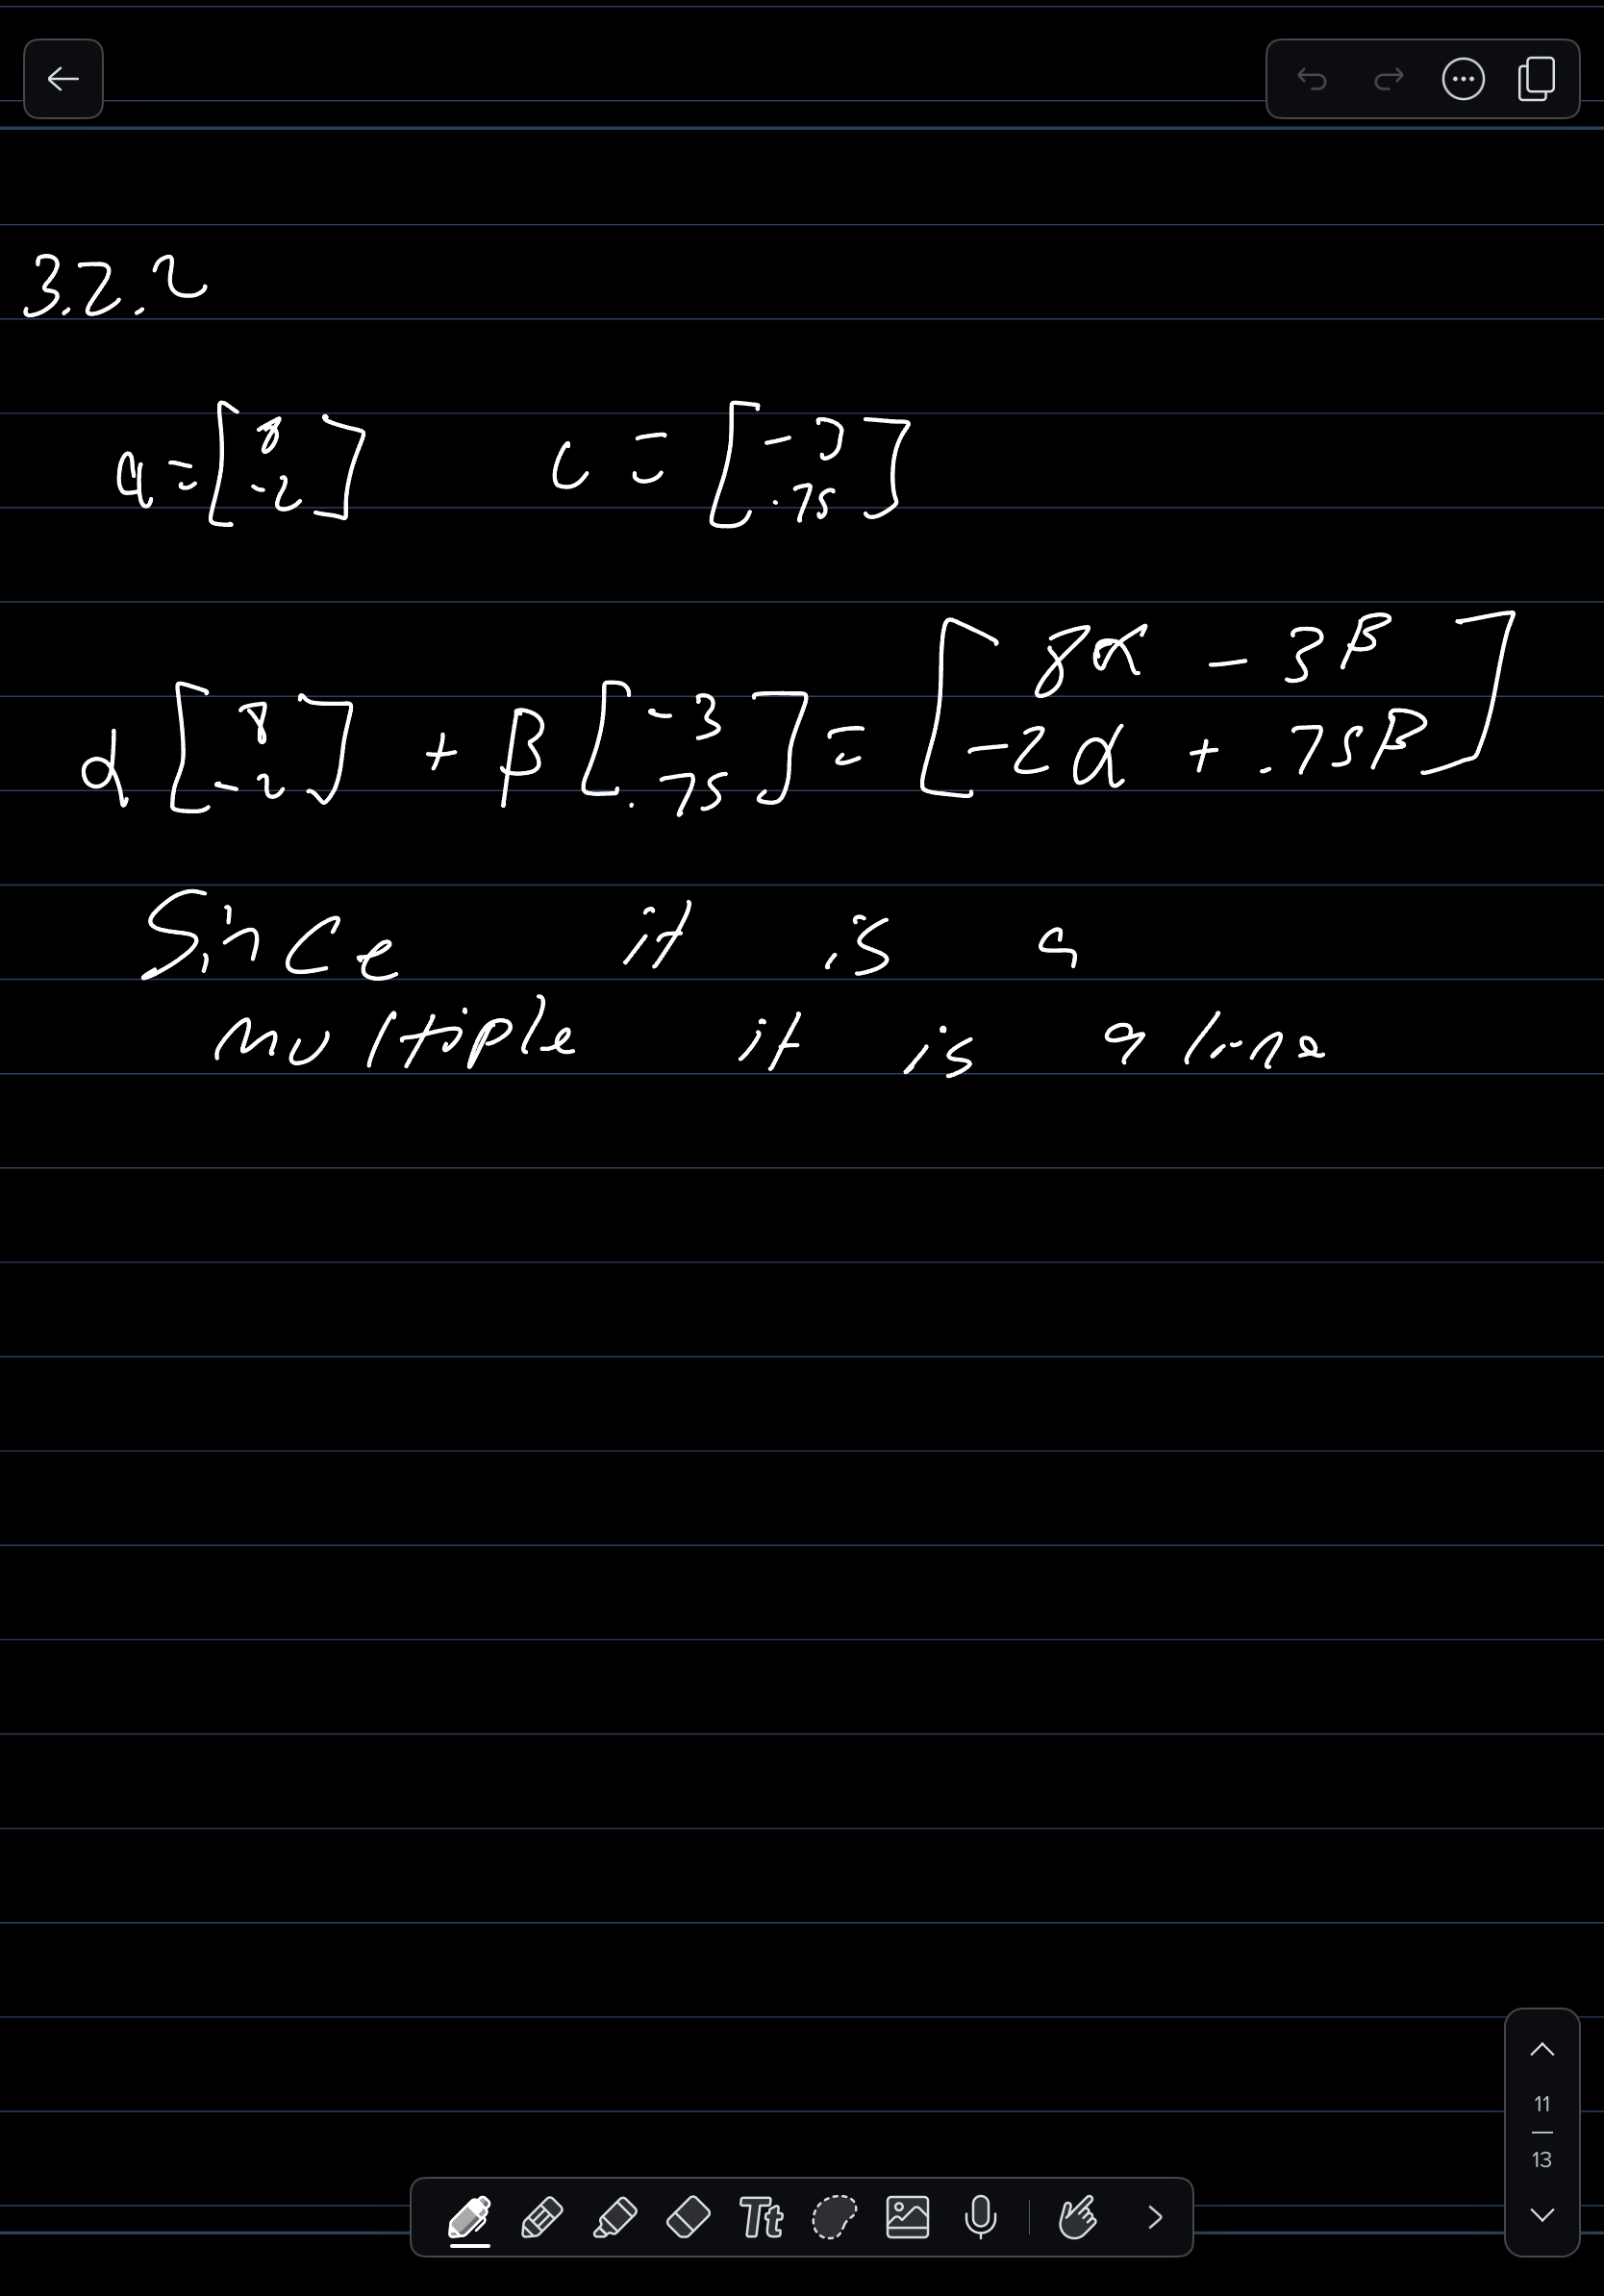 3.2.2
a = [8 -2] c = [-3 .75]
α [8 -2] + β [-3 .75] = [8α - 3β -2α + .75β]
Since it is a
multiple it is a line
Tt
11
13